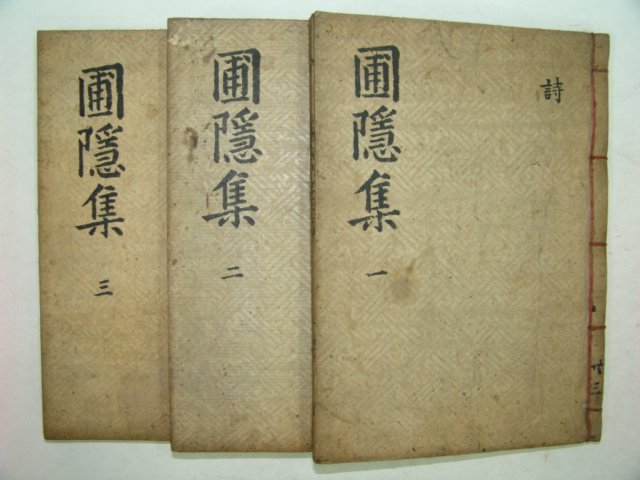 圃隱集
一
詩
共三
圃隱集
二
圃隱集
三